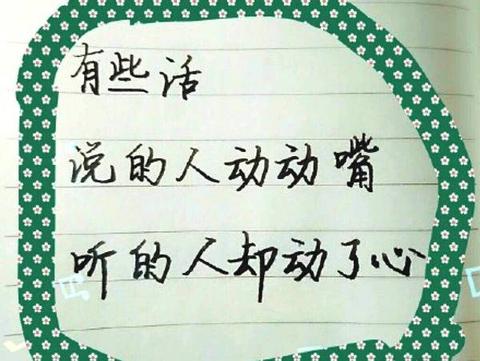 有些话
说的人动动嘴
听的人却动了心